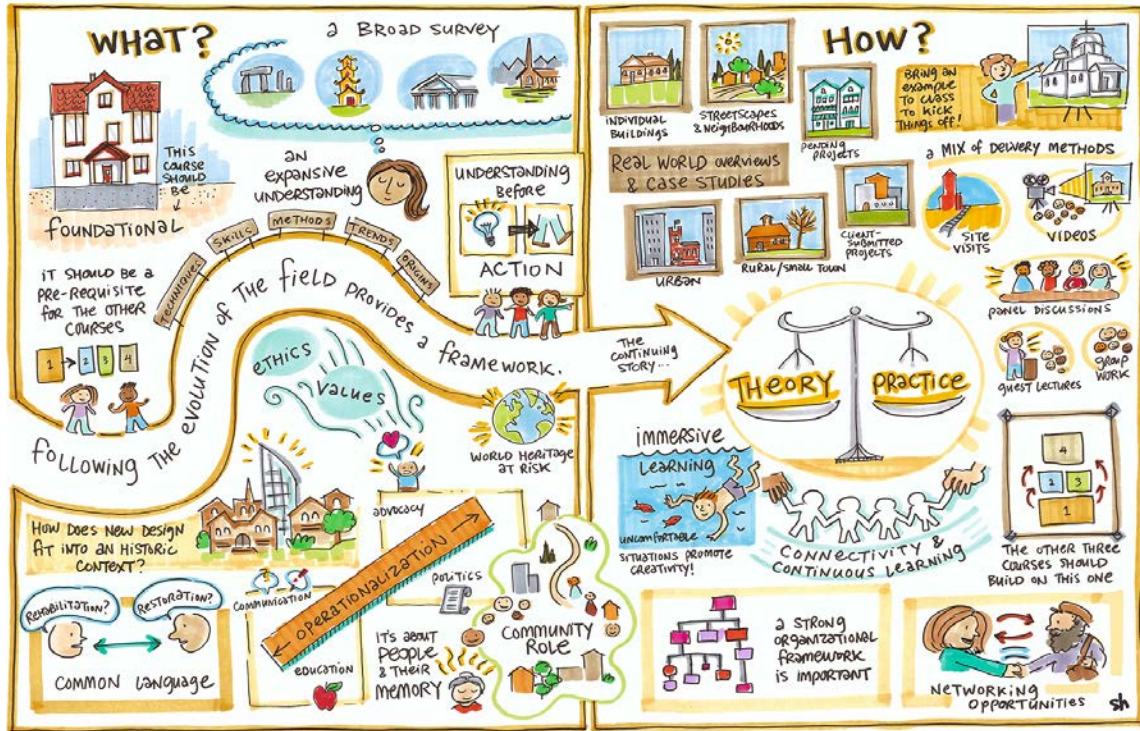 WHAT?
a BROAD SURVEY
THIS
COURSE
SHOULD
BE
FOUNDATIONAL
AN
EXPANSIVE
UNDERSTANDING
UNDERSTANDING
BEFORE
ACTION
IT SHOULD BE a
PRE-REQUISITE
FOR THE OTHER
COURSES
1 2 3 4
TECHNIQUES
SKILLS
METHODS
TRENDS
ORIGINS
FOLLOWING THE EVOLUTION OF THE FIELD PROVIDES a FRAMEWORK.
THE
CONTINUING
STORY...
ETHICS
VALUES
WORLD HERITAGE
AT RISK
HOW DOES NEW DESIGN
FIT INTO AN HISTORIC
CONTEXT?
REHABILITATION?
RESTORATION?
COMMON LANGUAGE
ADVOCACY
COMMUNICATION
OPERATIONALIZATION
POLITICS
EDUCATION
IT'S ABOUT
PEOPLE
& THEIR
MEMORY
COMMUNITY
ROLE
HOW?
INDIVIDUAL
BUILDINGS
STREETSCAPES
& NEIGHBOURHOODS
PENDING
PROJECTS
BRING AN
EXAMPLE
TO CLASS
TO KICK
THINGS OFF!
REAL WORLD OVERVIEWS
& CASE STUDIES
URBAN
RURAL/SMALL TOWN
CLIENT-
SUBMITTED
PROJECTS
a MIX OF DELIVERY METHODS
SITE
VISITS
VIDEOS
PANEL DISCUSSIONS
GUEST LECTURES
GROUP
WORK
THEORY
PRACTICE
IMMERSIVE
LEARNING
UNCOMFORTABLE
SITUATIONS PROMOTE
CREATIVITY!
CONNECTIVITY &
CONTINUOUS LEARNING
4
2 3
1
THE OTHER THREE
COURSES SHOULD
BUILD ON THIS ONE
a STRONG
ORGANIZATIONAL
FRAMEWORK
IS IMPORTANT
NETWORKING
OPPORTUNITIES
sh